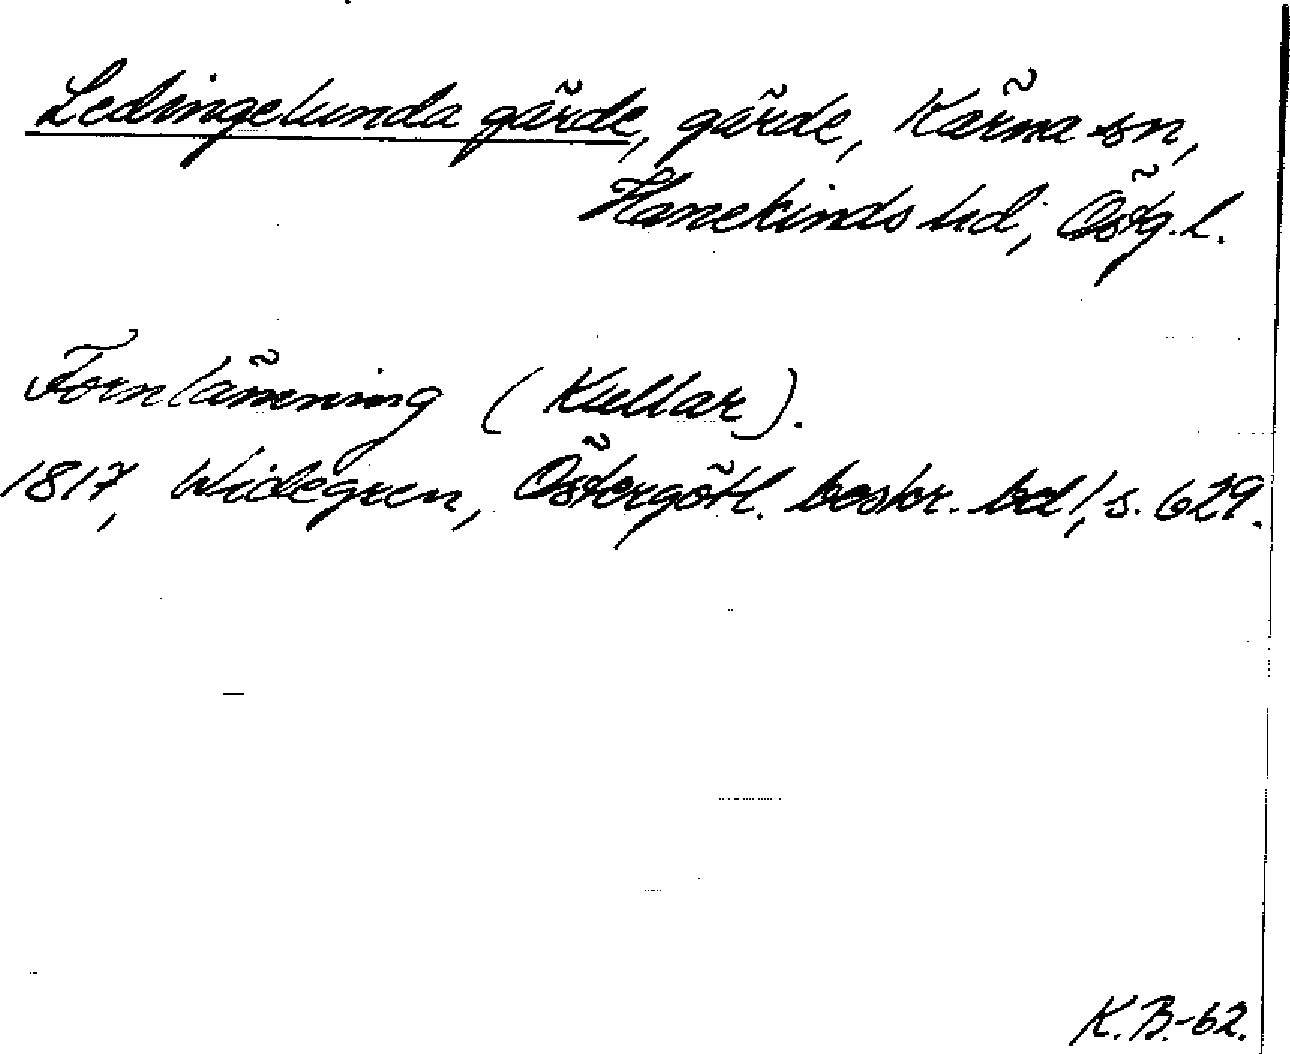 Ledingelunda gärde, gärde, Kärna sn,
Hanekinds hd, Östg. l.
Fornlämning (Kullar).
1817, Widegren, Östergötl. beskr. bd 1, s. 629.
K.B.-62.